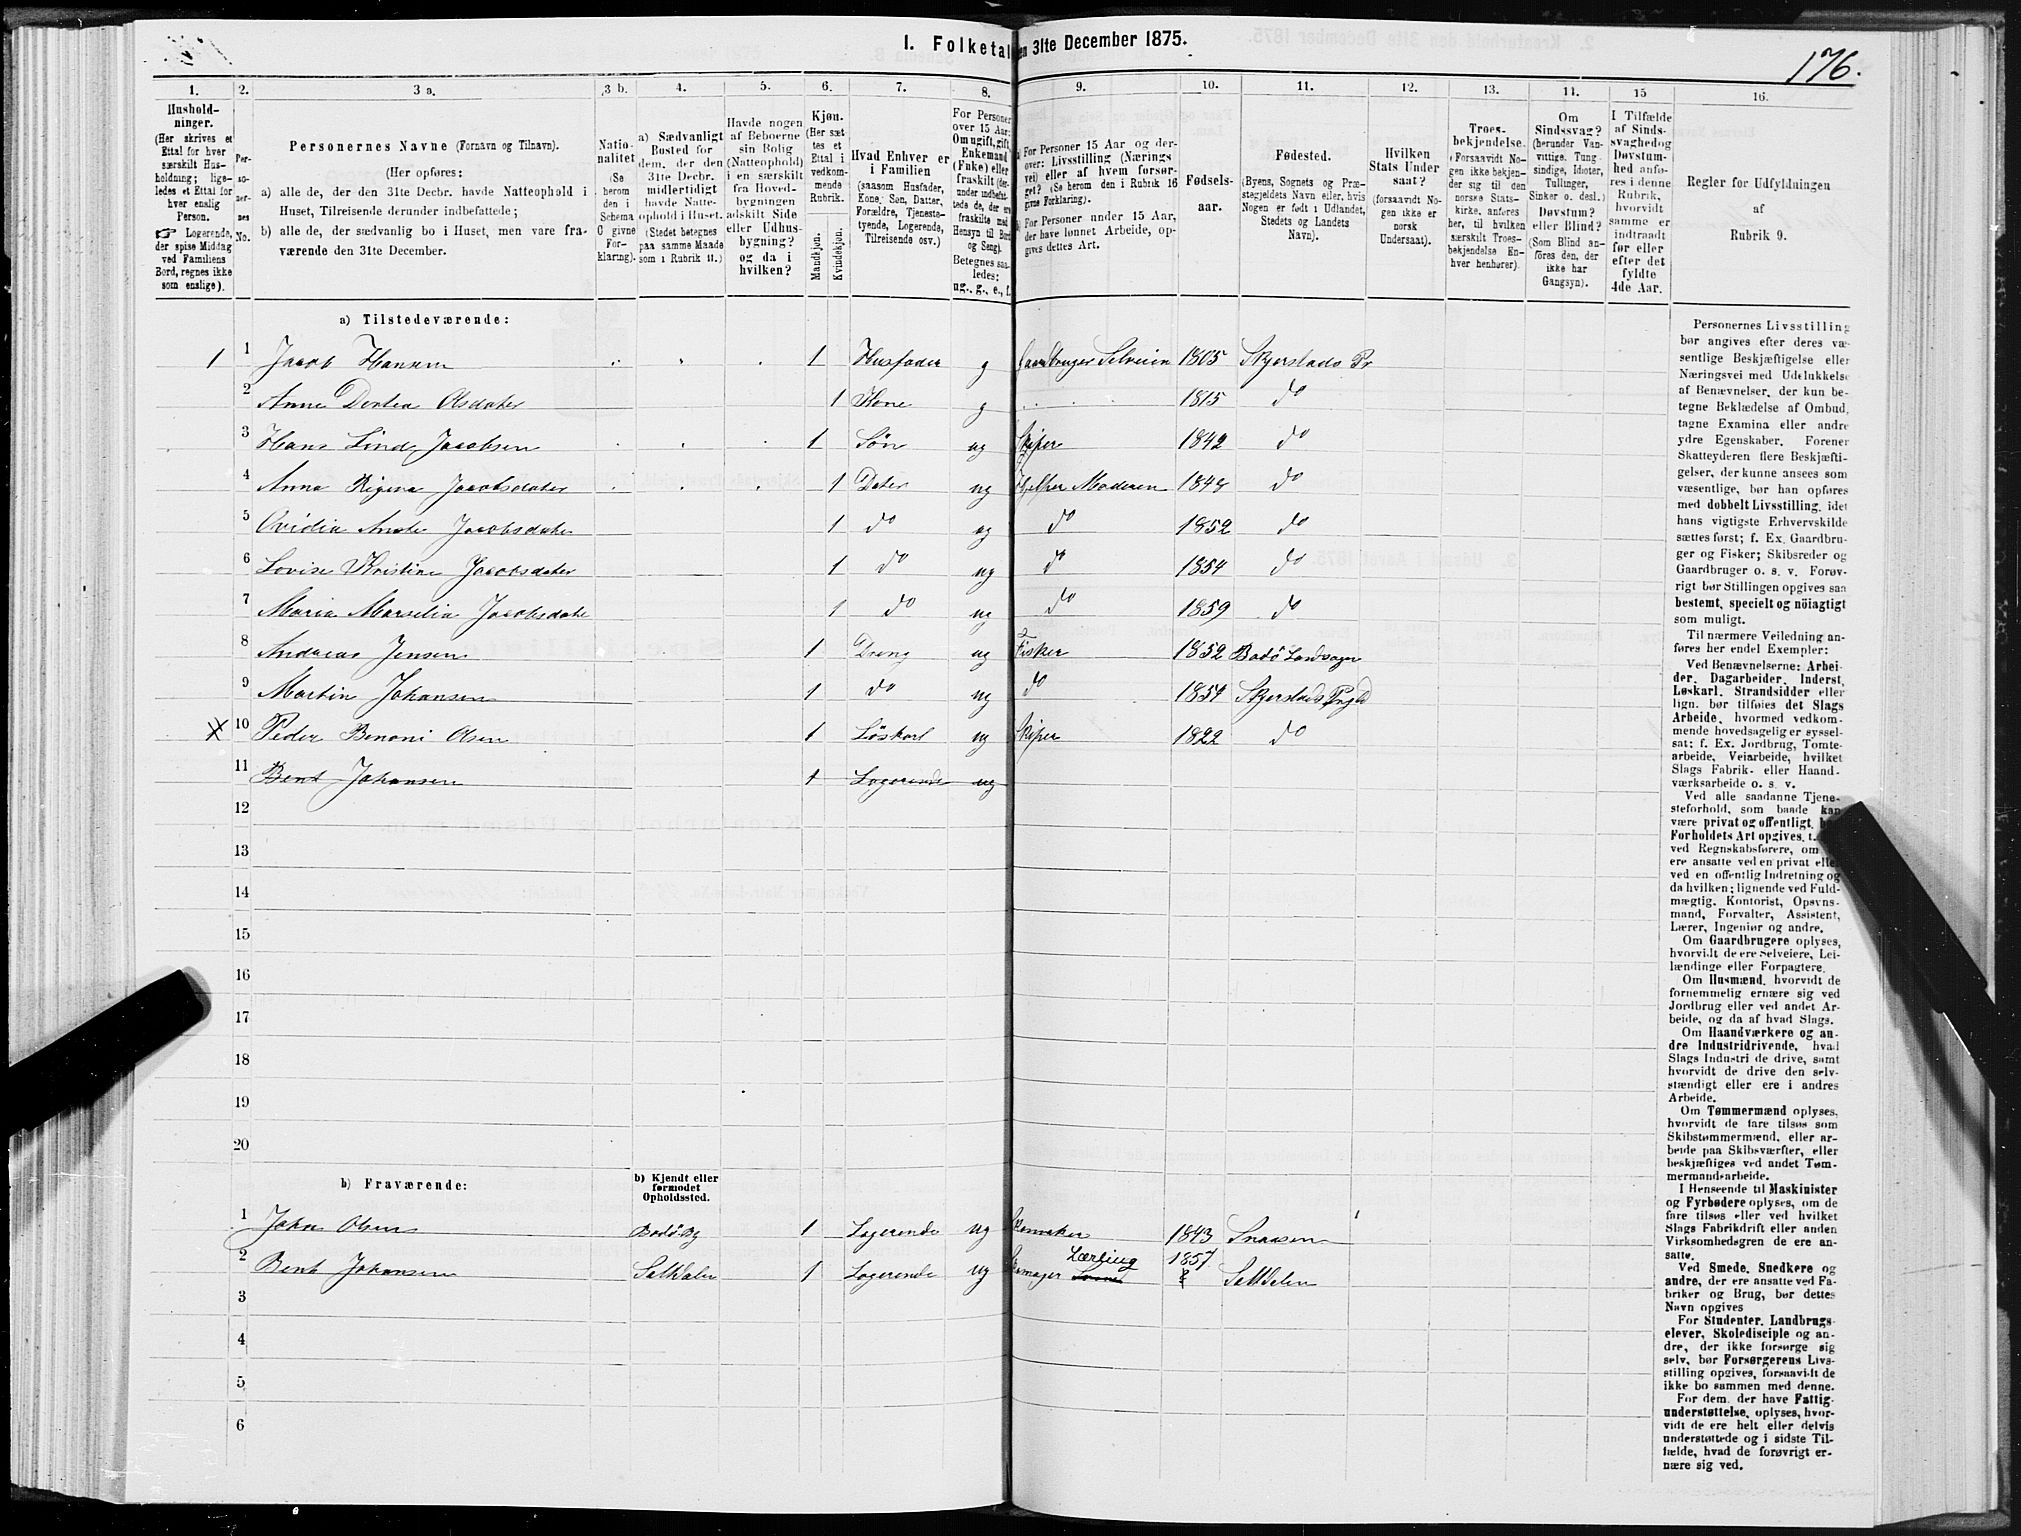 I. Folketal
en 31te December 1875.
176.
1. 2. 3 a. 3 b. 4. 5. 6. 7. 8. 9. 10. 11. 12. 13. 14. 15 16.
Hushold-
ninger.
(Her skrives et
Ettal for hver
særskilt Hus-
holdning; lige-
ledes et Ettal for
hver enslig
Person.
☞ Logerende,
der spise Middag
ved Familiens
Bord, regnes ikke
som enslige).
Per-
No.
Personernes Navne (Fornavn og Tilnavn).
(Her opføres:
a) alle de, der den 31te Decbr. havde Natteophold i
Huset, Tilreisende derunder indbefattede;
b) alle de, der sædvanlig bo i Huset, men vare fra-
værende den 31te December.
Natio-
nalitet
(Se
herom
den i
Schema
C givne
For-
klaring).
a) Sædvanligt
Bosted for
dem, der den
31te Decbr.
midlertidigt
havde Natte-
ophold i Huset.
(Stedet betegnes
paa samme Maade
som i Rubrik 11.)
Havde nogen
af Beboerne
sin Bolig
(Natteophold)
i en særskilt
fra Hoved-
bygningen
adskilt Side
eller Udhus-
bygning?
og da i
hvilken?
Kjøn.
(Her sæt
tes et
Ettal i
vedkom-
mende
Rubrik.
Mandkjøn.
Kvindekjøn.
Hvad Enhver er
i Familien
(saasom Husfader,
Kone, Søn, Datter,
Forældre, Tjeneste-
tyende, Logerende,
Tilreisende osv.)
For Personer
over 15 Aar:
Om ugift, gift,
Enkemand
(Enke) eller
fraskilt (der-
under indbefat-
tede de, der ere
fraskilte med
Hensyn til Bord
og Seng).
Betegnes saa-
ledes:
ug., g., e., f.
For Personer 15 Aar og der-
over: Livsstilling (Nærings
vei) eller af hvem forsør-
get? (Se herom den i Rubrik 16
givne Forklaring).
For Personer under 15 Aar,
der have lønnet Arbeide, op-
gives dettes Art.
Fødsels-
aar.
Fødested.
(Byens, Sognets og Præ-
stegjeldets Navn eller, hvis
Nogen er født i Udlandet,
Stedets og Landets
Navn).
Hvilken
Stats Under
saat?
(forsaavidt No-
gen ikke er
norsk
Undersaat).
Troes-
bekjendelse.
(Forsaavidt No-
gen ikke bekjen-
der sig til den
norske Stats-
kirke, anføres
her, til hvilken
særskilt Troes-
bekjendelse En-
hver henhører).
Om
Sindssvag?
(herunder Van-
vittige, Tung-
sindige, Idioter,
Tullinger,
Sinker o. desl.)
Døvstum?
eller Blind?
(Som Blind an-
føres den, der
ikke har
Gangsyn).
I Tilfælde
af Sinds-
svaghedog
Døvstum-
hed anfø-
res i denne
Rubrik,
hvorvidt
samme er
indtraadt
før eller
efter det
fyldte
4de Aar.
Regler for Udfyldningen
af
Rubrik 9.
a) Tilstedeværende:
1 1 Jacob Hansen 1 Husfader g Gaardbruger Selveien 1805 Skjerstads Pr
2 Anne Dortea Olsdater 1 Kone g 1815 do
3 Hans Lind Jacobsen 1 Søn ug Skiper 1842 do
4 Anna Regina Jacobsdater 1 Dater ug Hjelper Moderen 1848 do
5 Ovidia Jacobsdater 1 do ug do 1852 do
6 Lovise Kristine Jacobsdater 1 do ug do 1854 do
7 Maria Marselia Jacobsdate 1 do ug do 1859 do
8 Andreas Jensen 1 Dreng ug Fisker 1852 Bodö Landsogn
9 Martin Johansen 1 do ug do 1854 Skjerstads Prgd
X 10 Peder Benoni Olsen 1 Löskarl ug Skiper 1822 do
11 Bent Johansen 1 Logerende ug
12
13
14
15
16
17
18
19
20
b) Fraværende:
b) Kjendt eller
formodet
Opholdssted.
1 John Olsen Bodö By 1 Logerende ug Skomaker 1843 Snaasen
2 Bent Johansen Saltdalen 1 Logerende ug Skomager Lærling 1857 Saltdalen
3
4
5
6
Personernes Livsstilling
bør angives efter deres væ-
sentlige Beskjæftigelse eller
Næringsvei med Udelukkelse
af Benævnelser, der kun be-
tegne Beklædelse af Ombud,
tagne Examina eller andre
ydre Egenskaber. Forener
Skatteyderen flere Beskjæfti-
gelser, der kunne ansees som
væsentlige, bør han opføres
med dobbelt Livsstilling, idet
hans vigtigste Erhvervskilde
sættes først; f. Ex. Gaardbru-
ger og Fisker; Skibsreder og
Gaardbruger o. s. v. Forøv-
rigt bør Stillingen opgives saa
bestemt, specielt og nöiagtigt
som muligt.
Til nærmere Veiledning an-
føres her endel Exempler:
Ved Benævnelserne: Arbei-
der, Dagarbeider, Inderst,
Løskarl, Strandsidder eller
lign. bør tilføies det Slags
Arbeide, hvormed vedkom-
mende hovedsagelig er syssel-
sat; f. Ex. Jordbrug, Tomte-
arbeide, Veiarbeide, hvilket
Slags Fabrik- eller Haand-
værksarbeide o. s. v.
Ved alle saadanne Tjene-
steforhold, som baade kan
være privat og offentligt,
Forholdets Art opgives, t.
ved Regnskabsførere, om
ere ansatte ved en privat eller
ved en offentlig Indretning og
da hvilken; lignende ved Fuld-
mægtig, Kontorist, Opsyns-
mand, Forvalter, Assistent,
Lærer, Ingeniør og andre.
Om Gaardbrugere oplyses,
hvorvidt de ere Selveiere, Lei-
lændinge eller Forpagtere.
Om Husmænd, hvorvidt de
fornemmelig ernære sig ved
Jordbrug eller ved andet Ar-
beide, og da af hvad Slags.
Om Haandværkere og an-
dre Industridrivende, hvad
Slags Industri de drive, samt
hvorvidt de drive den selv-
stændigt eller ere i andres
Arbeide.
Om Tømmermænd oplyses,
hvorvidt de fare tilsøs som
Skibstømmermænd, eller ar-
beide paa Skibsværfter, eller
beskjæftiges ved andet Tøm-
mermandsarbeide.
I Henseende til Maskinister
og Fyrbødere oplyses, om de
fare tilsøs eller ved hvilket
Slags Fabrikdrift eller anden
Virksomhedsgren de ere an-
satte.
Ved Smede, Snedkere og
andre, der ere ansatte ved Fa-
briker og Brug, bør dettes
Navn opgives
For Studenter, Landbrugs-
elever, Skoledisciple og an-
dre, der ikke forsørge sig
selv, bør Forsørgerens Livs-
stilling opgives, forsaavidt de
ikke bo sammen med denne.
For dem, der have Fattig-
understøttelse, oplyses, hvor-
vidt de ere helt eller delvis
understøttede og i sidste Til-
fælde, hvad de forøvrigt er-
nære sig ved.